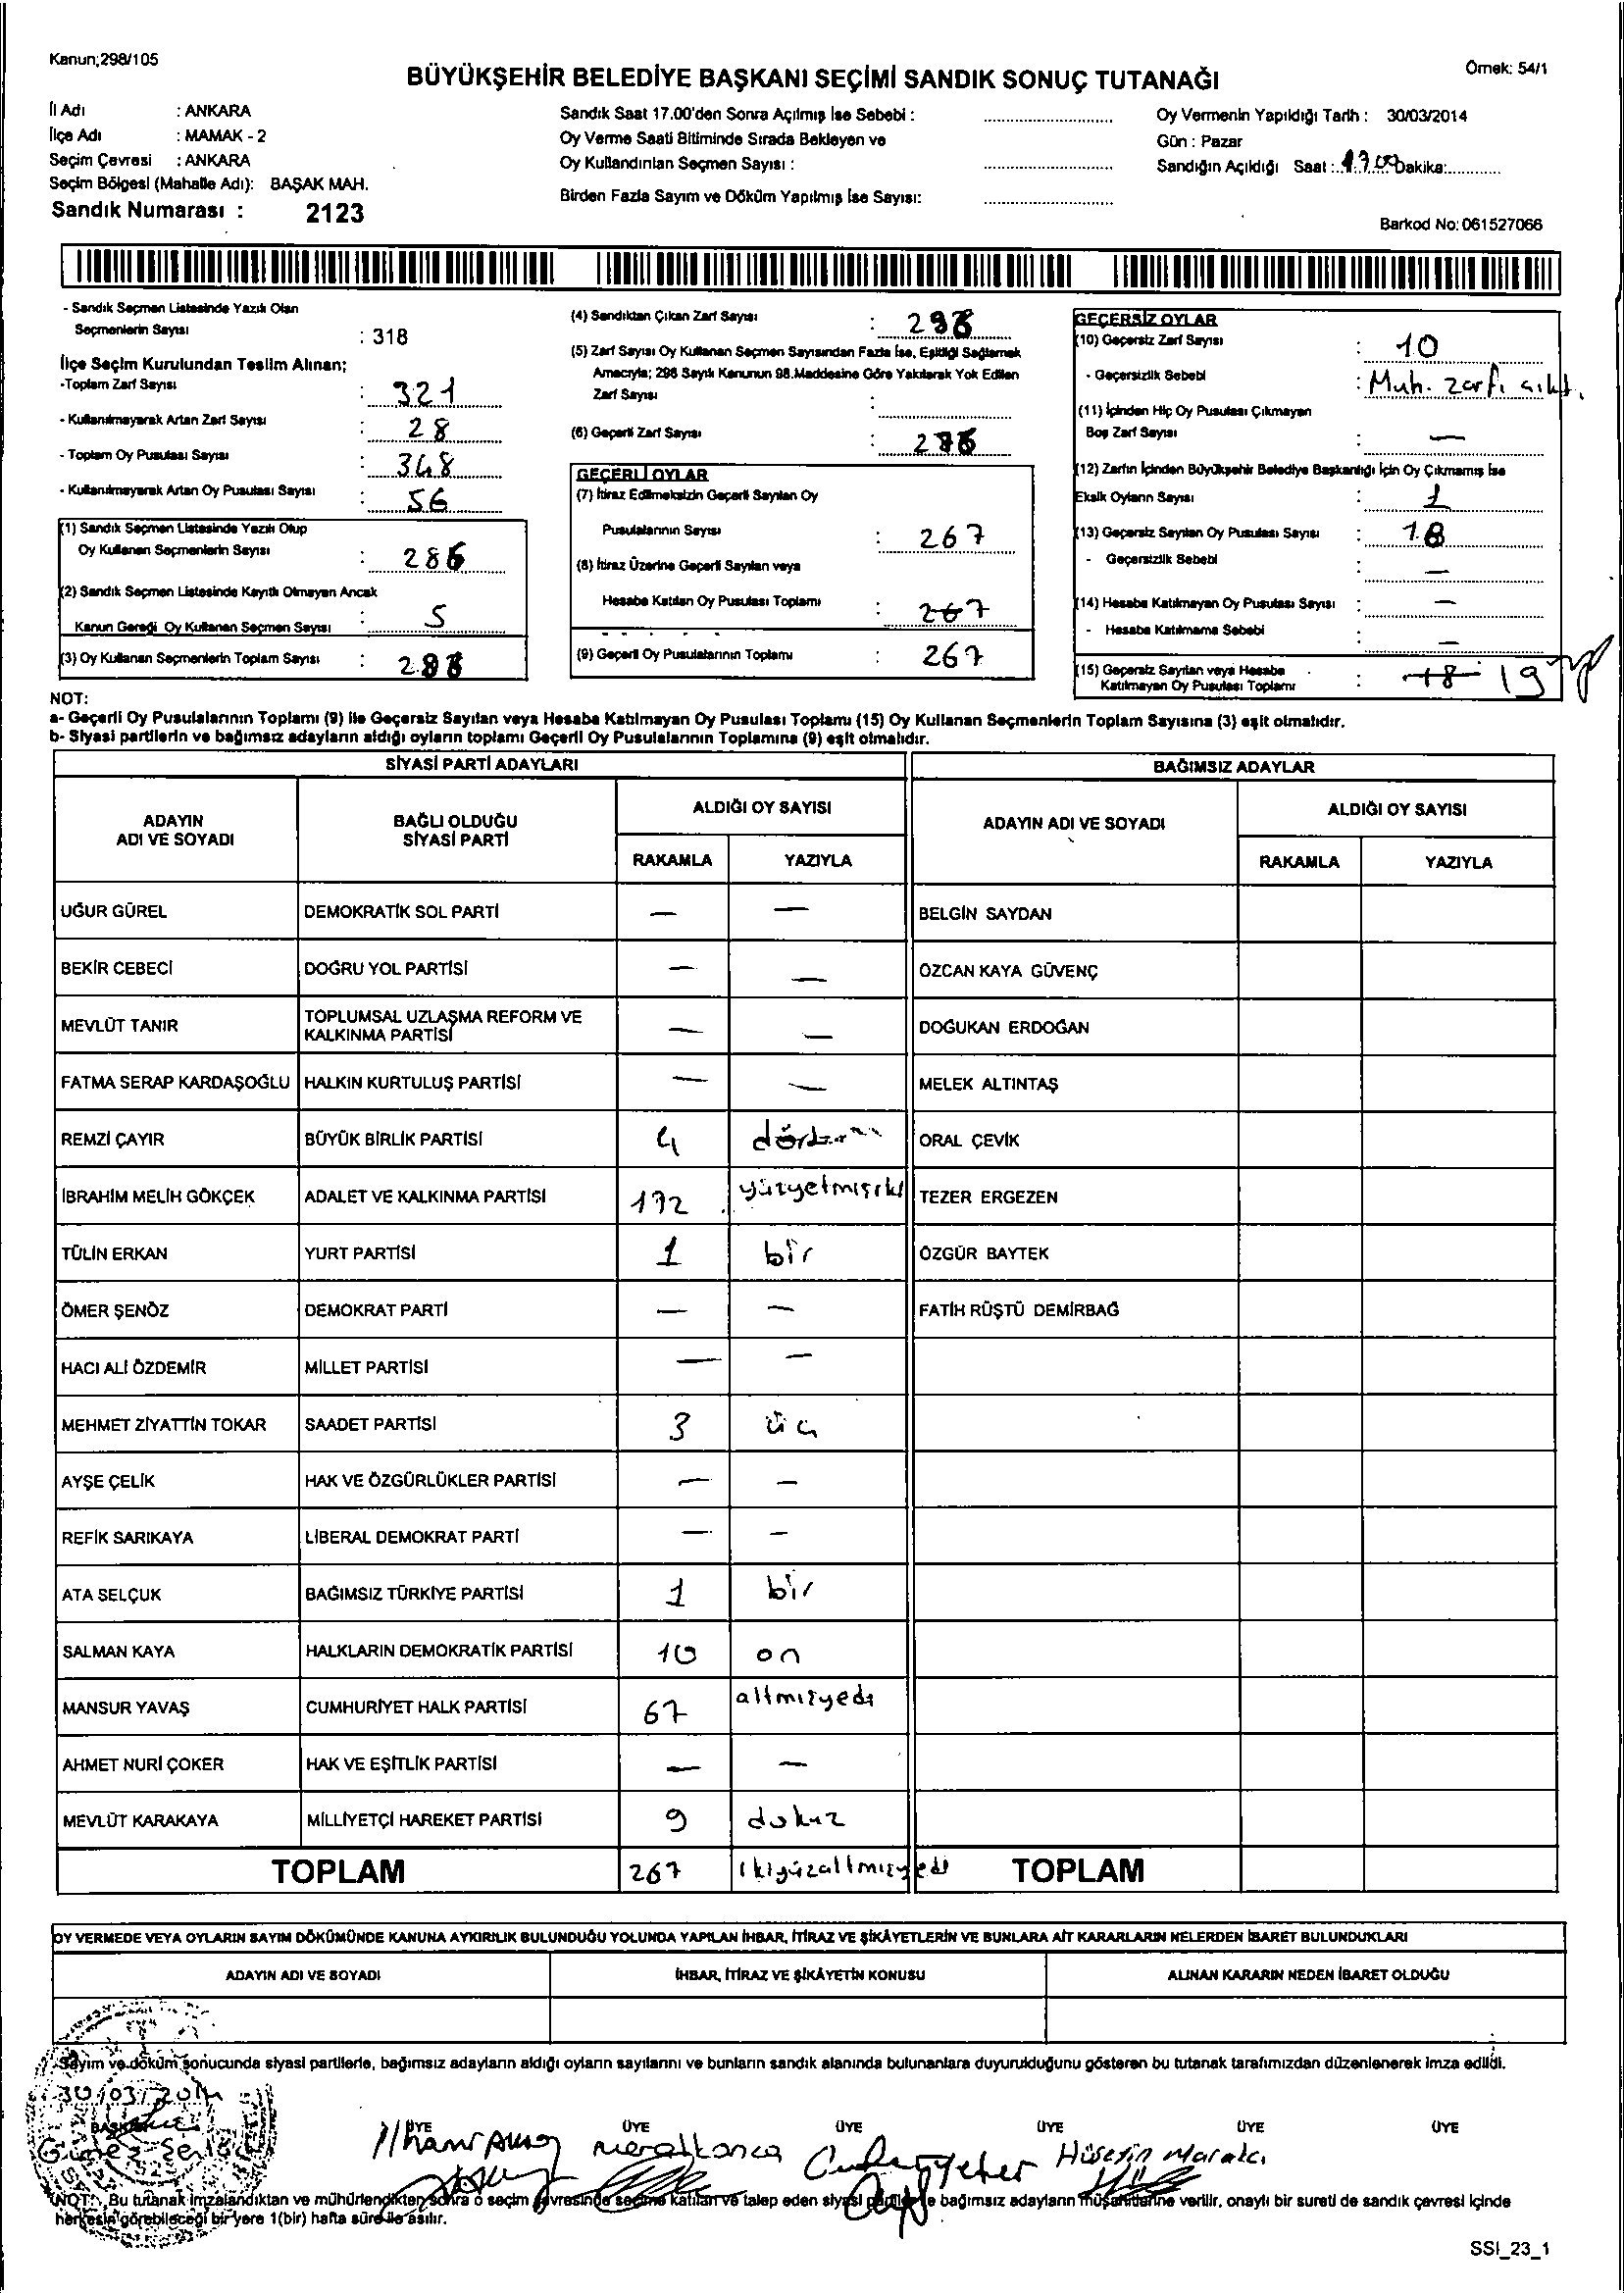 Kanun;298/105
Örnek: 54/1
BÜYÜKŞEHİR BELEDİYE BAŞKANI SEÇİMİ SANDIK SONUÇ TUTANAĞI
İl Adı : ANKARA
İlçe Adı : MAMAK - 2
Seçim Çevresi : ANKARA
Seçim Bölgesi (Mahalle Adı): BAŞAK MAH.
Sandık Numarası : 2123
Sandık Saat 17.00'den Sonra Açılmış İse Sebebi :
Oy Verme Saati Bitiminde Sırada Bekleyen ve
Oy Kullandırılan Seçmen Sayısı :
Birden Fazla Sayım ve Döküm Yapılmış İse Sayısı:
Oy Vermenin Yapıldığı Tarih : 30/03/2014
Gün : Pazar
Sandığın Açıldığı Saat : 17.00 Dakika:
Barkod No: 061527066
- Sandık Seçmen Listesinde Yazılı Olan
Seçmenlerin Sayısı : 318
İlçe Seçim Kurulundan Teslim Alınan;
-Toplam Zarf Sayısı : 321
- Kullanılmayarak Artan Zarf Sayısı : 28
- Toplam Oy Pusulası Sayısı : 348
- Kullanılmayarak Artan Oy Pusulası Sayısı : 56
(1) Sandık Seçmen Listesinde Yazılı Olup
Oy Kullanan Seçmenlerin Sayısı :
(2) Sandık Seçmen Listesinde Kayıtlı Olmayan Ancak
Kanun Gereği Oy Kullanan Seçmen Sayısı : 5
(3) Oy Kullanan Seçmenlerin Toplam Sayısı :
(4) Sandıktan Çıkan Zarf Sayısı :
(5) Zarf Sayısı Oy Kullanan Seçmen Sayısından Fazla İse, Eşitliği Sağlamak
Amacıyla; 298 Sayılı Kanunun 98.Maddesine Göre Yakılarak Yok Edilen
Zarf Sayısı :
(6) Geçerli Zarf Sayısı :
GEÇERLİ OYLAR
(7) İtiraz Edilmeksizin Geçerli Sayılan Oy
Pusulalarının Sayısı : 267
(8) İtiraz Üzerine Geçerli Sayılan veya
Hesaba Katılan Oy Pusulası Toplamı : 267
(9) Geçerli Oy Pusulalarının Toplamı : 267
GEÇERSİZ OYLAR
(10) Geçersiz Zarf Sayısı : 10
- Geçersizlik Sebebi : Muh. zarfı çıktı.
(11) İçinden Hiç Oy Pusulası Çıkmayan
Boş Zarf Sayısı : —
(12) Zarfın İçinden Büyükşehir Belediye Başkanlığı İçin Oy Çıkmamış İse
Eksik Oyların Sayısı : 1
(13) Geçersiz Sayılan Oy Pusulası Sayısı : 18
- Geçersizlik Sebebi : —
(14) Hesaba Katılmayan Oy Pusulası Sayısı : —
- Hesaba Katılmama Sebebi : —
(15) Geçersiz Sayılan veya Hesaba
Katılmayan Oy Pusulası Toplamı : 18 19
NOT:
a- Geçerli Oy Pusulalarının Toplamı (9) ile Geçersiz Sayılan veya Hesaba Katılmayan Oy Pusulası Toplamı (15) Oy Kullanan Seçmenlerin Toplam Sayısına (3) eşit olmalıdır.
b- Siyasi partilerin ve bağımsız adayların aldığı oyların toplamı Geçerli Oy Pusulalarının Toplamına (9) eşit olmalıdır.
SİYASİ PARTİ ADAYLARI
BAĞIMSIZ ADAYLAR
ADAYIN
ADI VE SOYADI
BAĞLI OLDUĞU
SİYASİ PARTİ
ALDIĞI OY SAYISI
RAKAMLA YAZIYLA
ADAYIN ADI VE SOYADI
ALDIĞI OY SAYISI
RAKAMLA YAZIYLA
UĞUR GÜREL DEMOKRATİK SOL PARTİ — — BELGİN SAYDAN
BEKİR CEBECİ DOĞRU YOL PARTİSİ — — ÖZCAN KAYA GÜVENÇ
MEVLÜT TANIR TOPLUMSAL UZLAŞMA REFORM VE
KALKINMA PARTİSİ — — DOĞUKAN ERDOĞAN
FATMA SERAP KARDAŞOĞLU HALKIN KURTULUŞ PARTİSİ — — MELEK ALTINTAŞ
REMZİ ÇAYIR BÜYÜK BİRLİK PARTİSİ 4 dört ORAL ÇEVİK
İBRAHİM MELİH GÖKÇEK ADALET VE KALKINMA PARTİSİ 172 yüzyetmişiki TEZER ERGEZEN
TÜLİN ERKAN YURT PARTİSİ 1 bir ÖZGÜR BAYTEK
ÖMER ŞENÖZ DEMOKRAT PARTİ — — FATİH RÜŞTÜ DEMİRBAĞ
HACI ALİ ÖZDEMİR MİLLET PARTİSİ — —
MEHMET ZİYATTİN TOKAR SAADET PARTİSİ 3 üç
AYŞE ÇELİK HAK VE ÖZGÜRLÜKLER PARTİSİ — —
REFİK SARIKAYA LİBERAL DEMOKRAT PARTİ — —
ATA SELÇUK BAĞIMSIZ TÜRKİYE PARTİSİ 1 bir
SALMAN KAYA HALKLARIN DEMOKRATİK PARTİSİ 10 on
MANSUR YAVAŞ CUMHURİYET HALK PARTİSİ 67 altmışyedi
AHMET NURİ ÇOKER HAK VE EŞİTLİK PARTİSİ — —
MEVLÜT KARAKAYA MİLLİYETÇİ HAREKET PARTİSİ 9 dokuz
TOPLAM 267 ikiyüzaltmışyedi TOPLAM
OY VERMEDE VEYA OYLARIN SAYIM DÖKÜMÜNDE KANUNA AYKIRILIK BULUNDUĞU YOLUNDA YAPILAN İHBAR, İTİRAZ VE ŞİKÂYETLERİN VE BUNLARA AİT KARARLARIN NELERDEN İBARET BULUNDUKLARI
ADAYIN ADI VE SOYADI İHBAR, İTİRAZ VE ŞİKÂYETİN KONUSU ALINAN KARARIN NEDEN İBARET OLDUĞU
Sayım ve döküm sonucunda siyasi partilerle, bağımsız adayların aldığı oyların sayılarını ve bunların sandık alanında bulunanlara duyurulduğunu gösteren bu tutanak tarafımızdan düzenlenerek imza edildi.
30/03/2014
BAŞKAN ÜYE ÜYE ÜYE ÜYE ÜYE ÜYE
Hüseyin
NOT: Bu tutanak imzalandıktan ve mühürlendikten sonra o seçim çevresinde seçime katılan ve talep eden siyasi partilerle bağımsız adayların müşahitlerine verilir, onaylı bir sureti de sandık çevresi içinde
herkesin görebileceği bir yere 1(bir) hafta süre ile asılır.
SSI_23_1